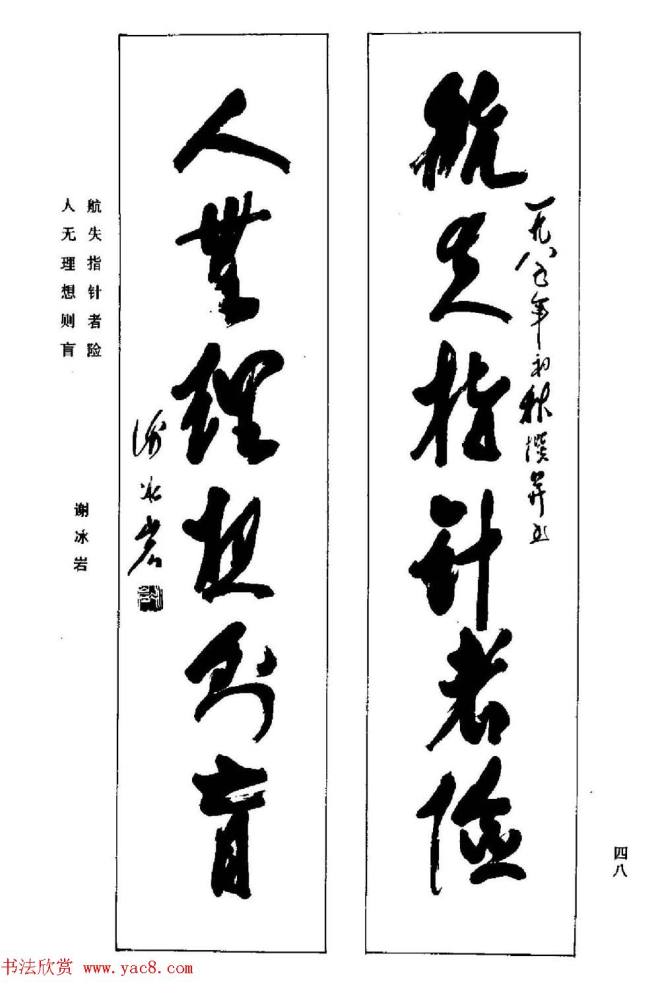 航失指针者险
一九八五年初秋撰并书
人無理想则盲
谢冰岩
航失指针者险
人无理想则盲
谢冰岩
四八
书法欣赏 www.yac8.com